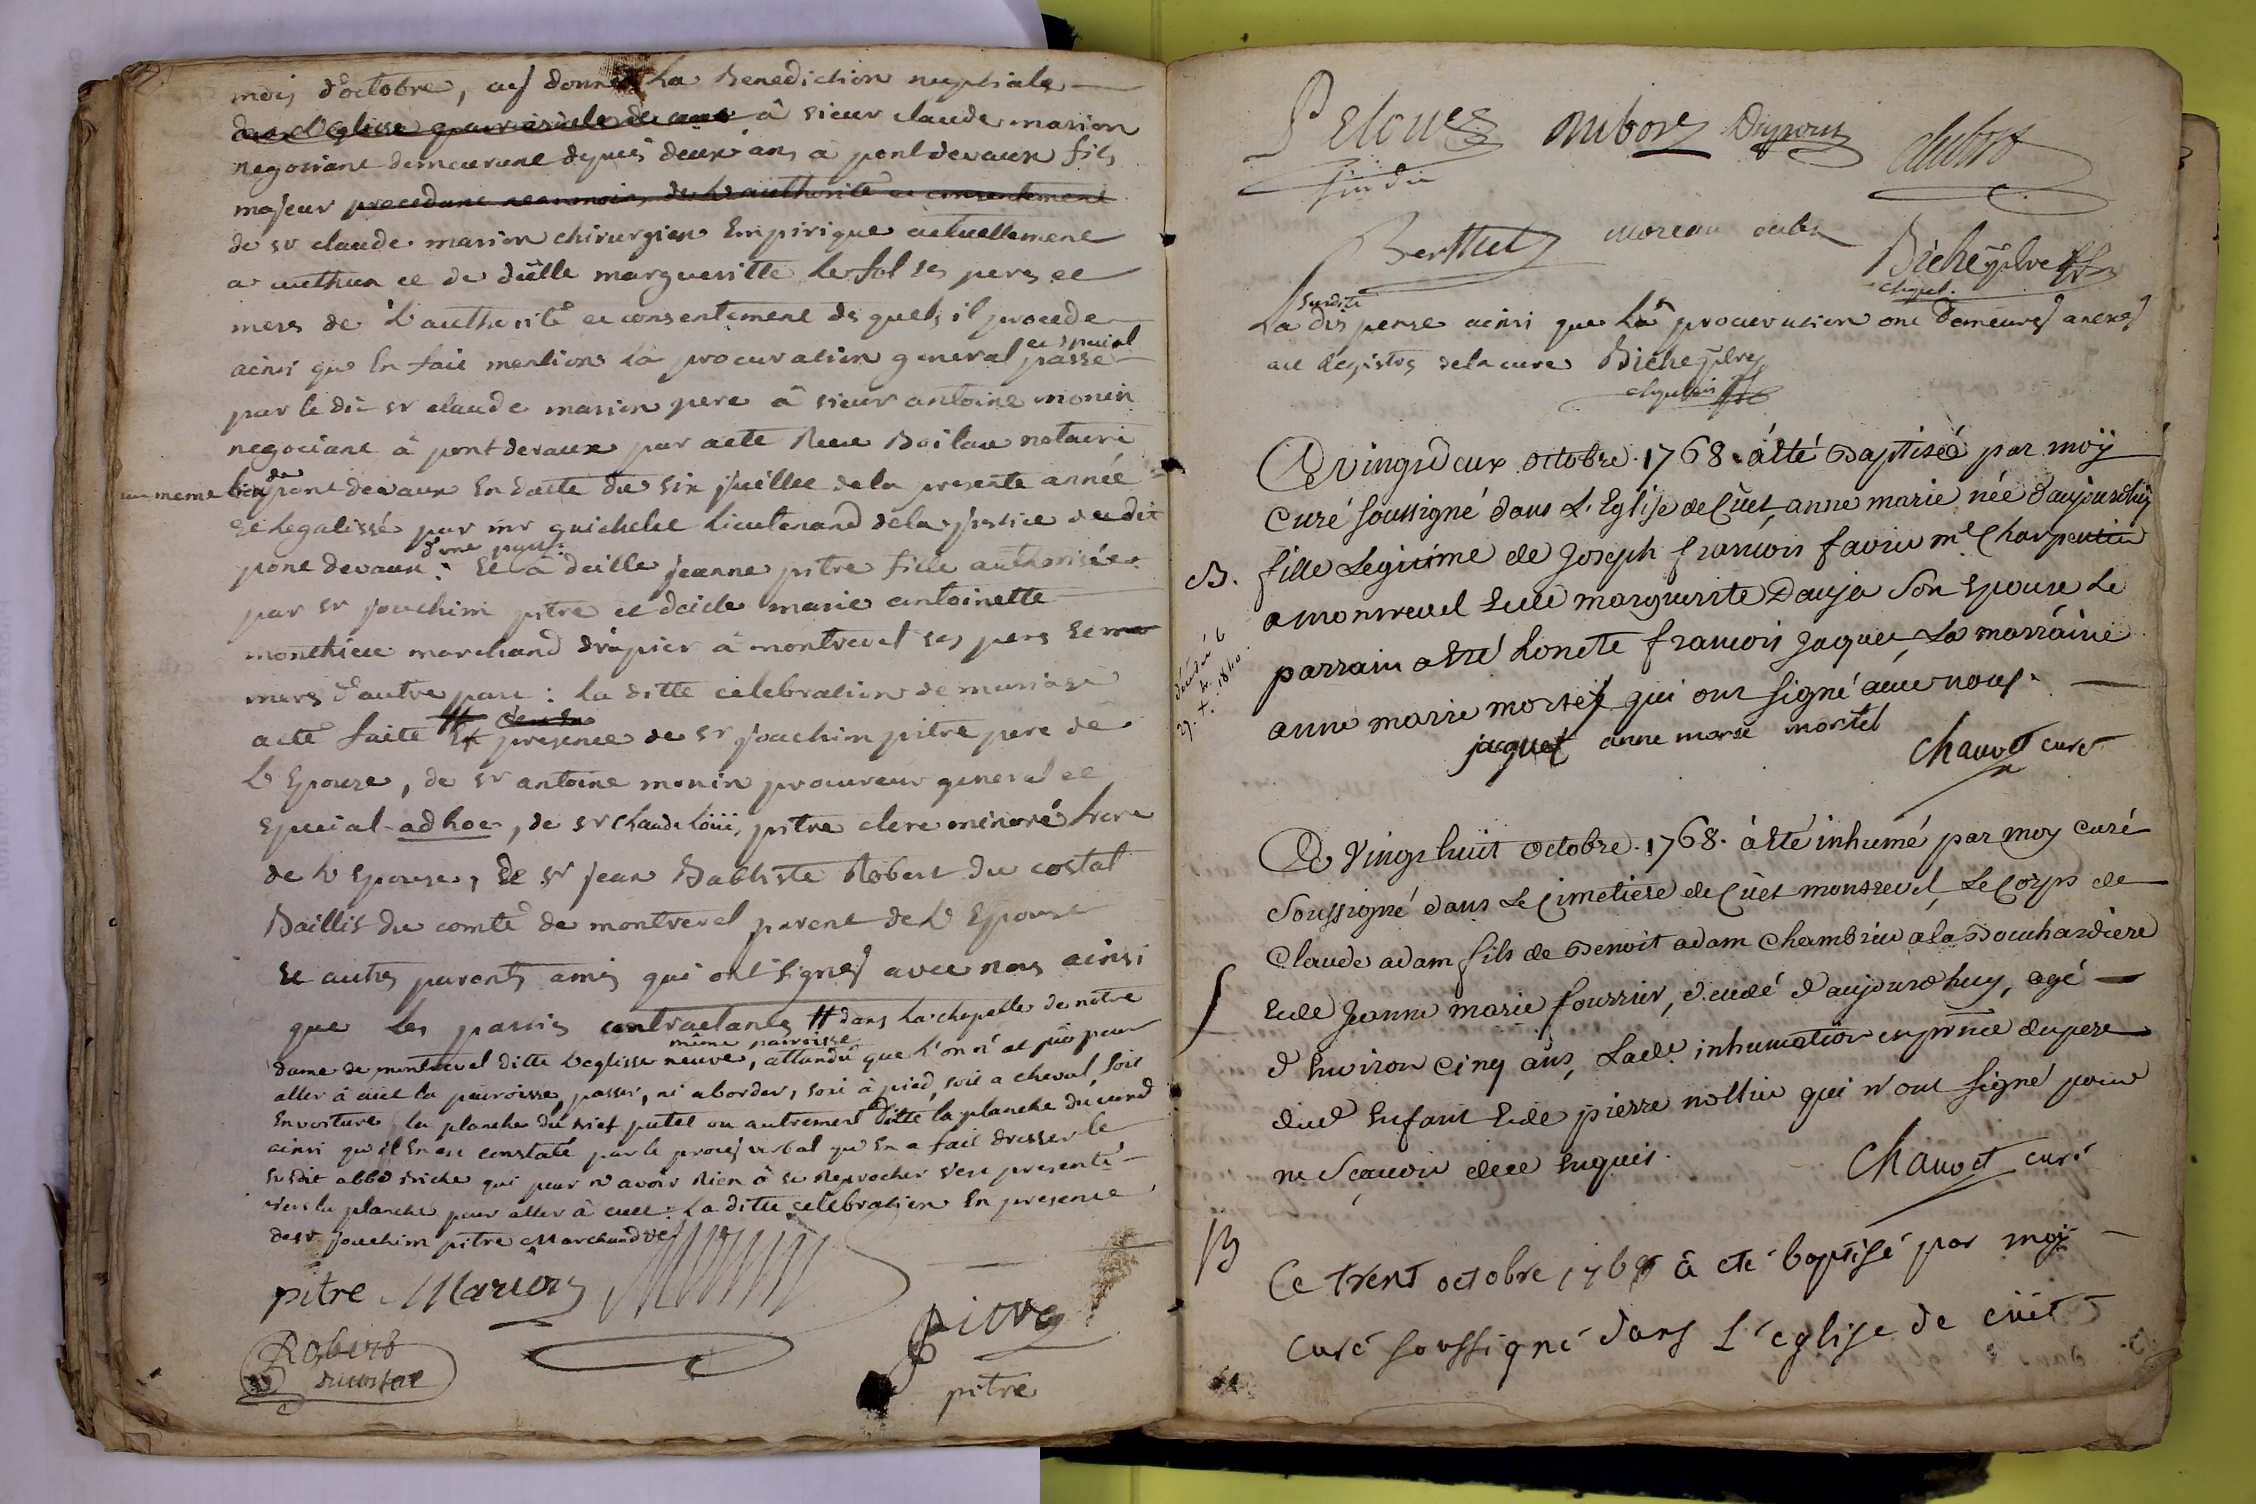 mois d'octobre, aij donné La Benediction nuptiale
dans l'Eglise parroissiale de cuet à sieur claude marion
negotiant demeurant depuis deux ans à pont devaux fils
majeur procedant neanmoins de L'authorité et consentement
de sr claude marion chirurgien Empirique actuellement
a authun et de dlle margueritte Le fol ses pere et
mere de L'authorité et consentement des quels il procede
ainsi que En fait mention La procuration general et special passé
par le dit sr claude marion pere à sieur antoine monin
negociant à pont devaux par acte Receu Boilau notaire
au meme lieu de pont devaux En datte du six juillet de la presente année
et Legalissé par mr guichelet Lieutenand de la justice du dit
pont devaux d'une part : Et à dlle jeanne pitre fille authorisée
par sr joachim pitre et dlle marie antoinette
monthieu marchand drapier à montrevel ses pere et
mere d'autre part : La ditte celebration de mariage
acté faite # En presence de sr joachim pitre pere de
L'Epouse, de sr antoine monin procureur general et
special ad hoc, de sr claude Loüis pitre clerc minoré frere
de L'Epouse, de sr jean Babtiste Robert du costal
Baillis du comté de montrevel parent de L'Epouse
et autres parents amis qui ont signés avec nous ainsi
que Les parties contractantes # dans La chapelle de nôtre
dame de montrevel ditte L'eglisse neuve, même parroisse, attendu que L'on n'at pû pour
aller à cuet la parroisse, passer, ni aborder, soit à pied, soit a cheval, soit
En voiture, la planche du bief putet ou autrement ditte la planche du curé
ainsi qu'il En est constaté par le procès verbal qu'En a fait dresser le
susdit abbé Biche qui pour n'avoir Rien à se Reprocher s'est presenté
vers la planche pour aller à cuet. La ditte celebration En presence
de sr joachim pitre Marchand de
pitre Marion Monin
Robert ducostal
pitre
pitre
Peloues Aubory Dupous Aubry
sindic
Berthet moreau Biche ptre
chapel.
La susdite dispense ainsi que La procuration ont demeurés anexés
au Registre de la cure Biche ptre
chapelain
Ce vingtdeux octobre 1768 a été Baptisée par moÿ
Curé soussigné dans L'Eglise de Cuet, anne marie née d'aujourdhuÿ
B. fille Legitime de Joseph francois favier me Charpentier
a montrevel et de marguerite Dauja son Epouse Le
parrain a été honete francois Jaquet, La marraine
anne marie mortel qui ont signé avec nous.
décédée
le 27. Xbre 1840.
jaquet anne marie mortel
Chauvet curé
Ce vingt huit octobre 1768 a été inhumé par moy curé
soussigné dans Le Cimetiere de Cuet montrevel, Le Corps de
Claude adam fils de Benoit adam Chambrier a la Bouchardiere
S et de Jeanne marie fourrier, decedé d'aujourdhuy, agé
d'Environ Cinq ans, Lade. inhumation en prnce du pere
dud Enfant et de pierre nottier qui n'ont signé pour
ne sçavoir de ce Enquis.
Chauvet curé
B Ce trent octobre 1768 à eté baptisé par moÿ
curé soussigné dans L'eglise de cüet